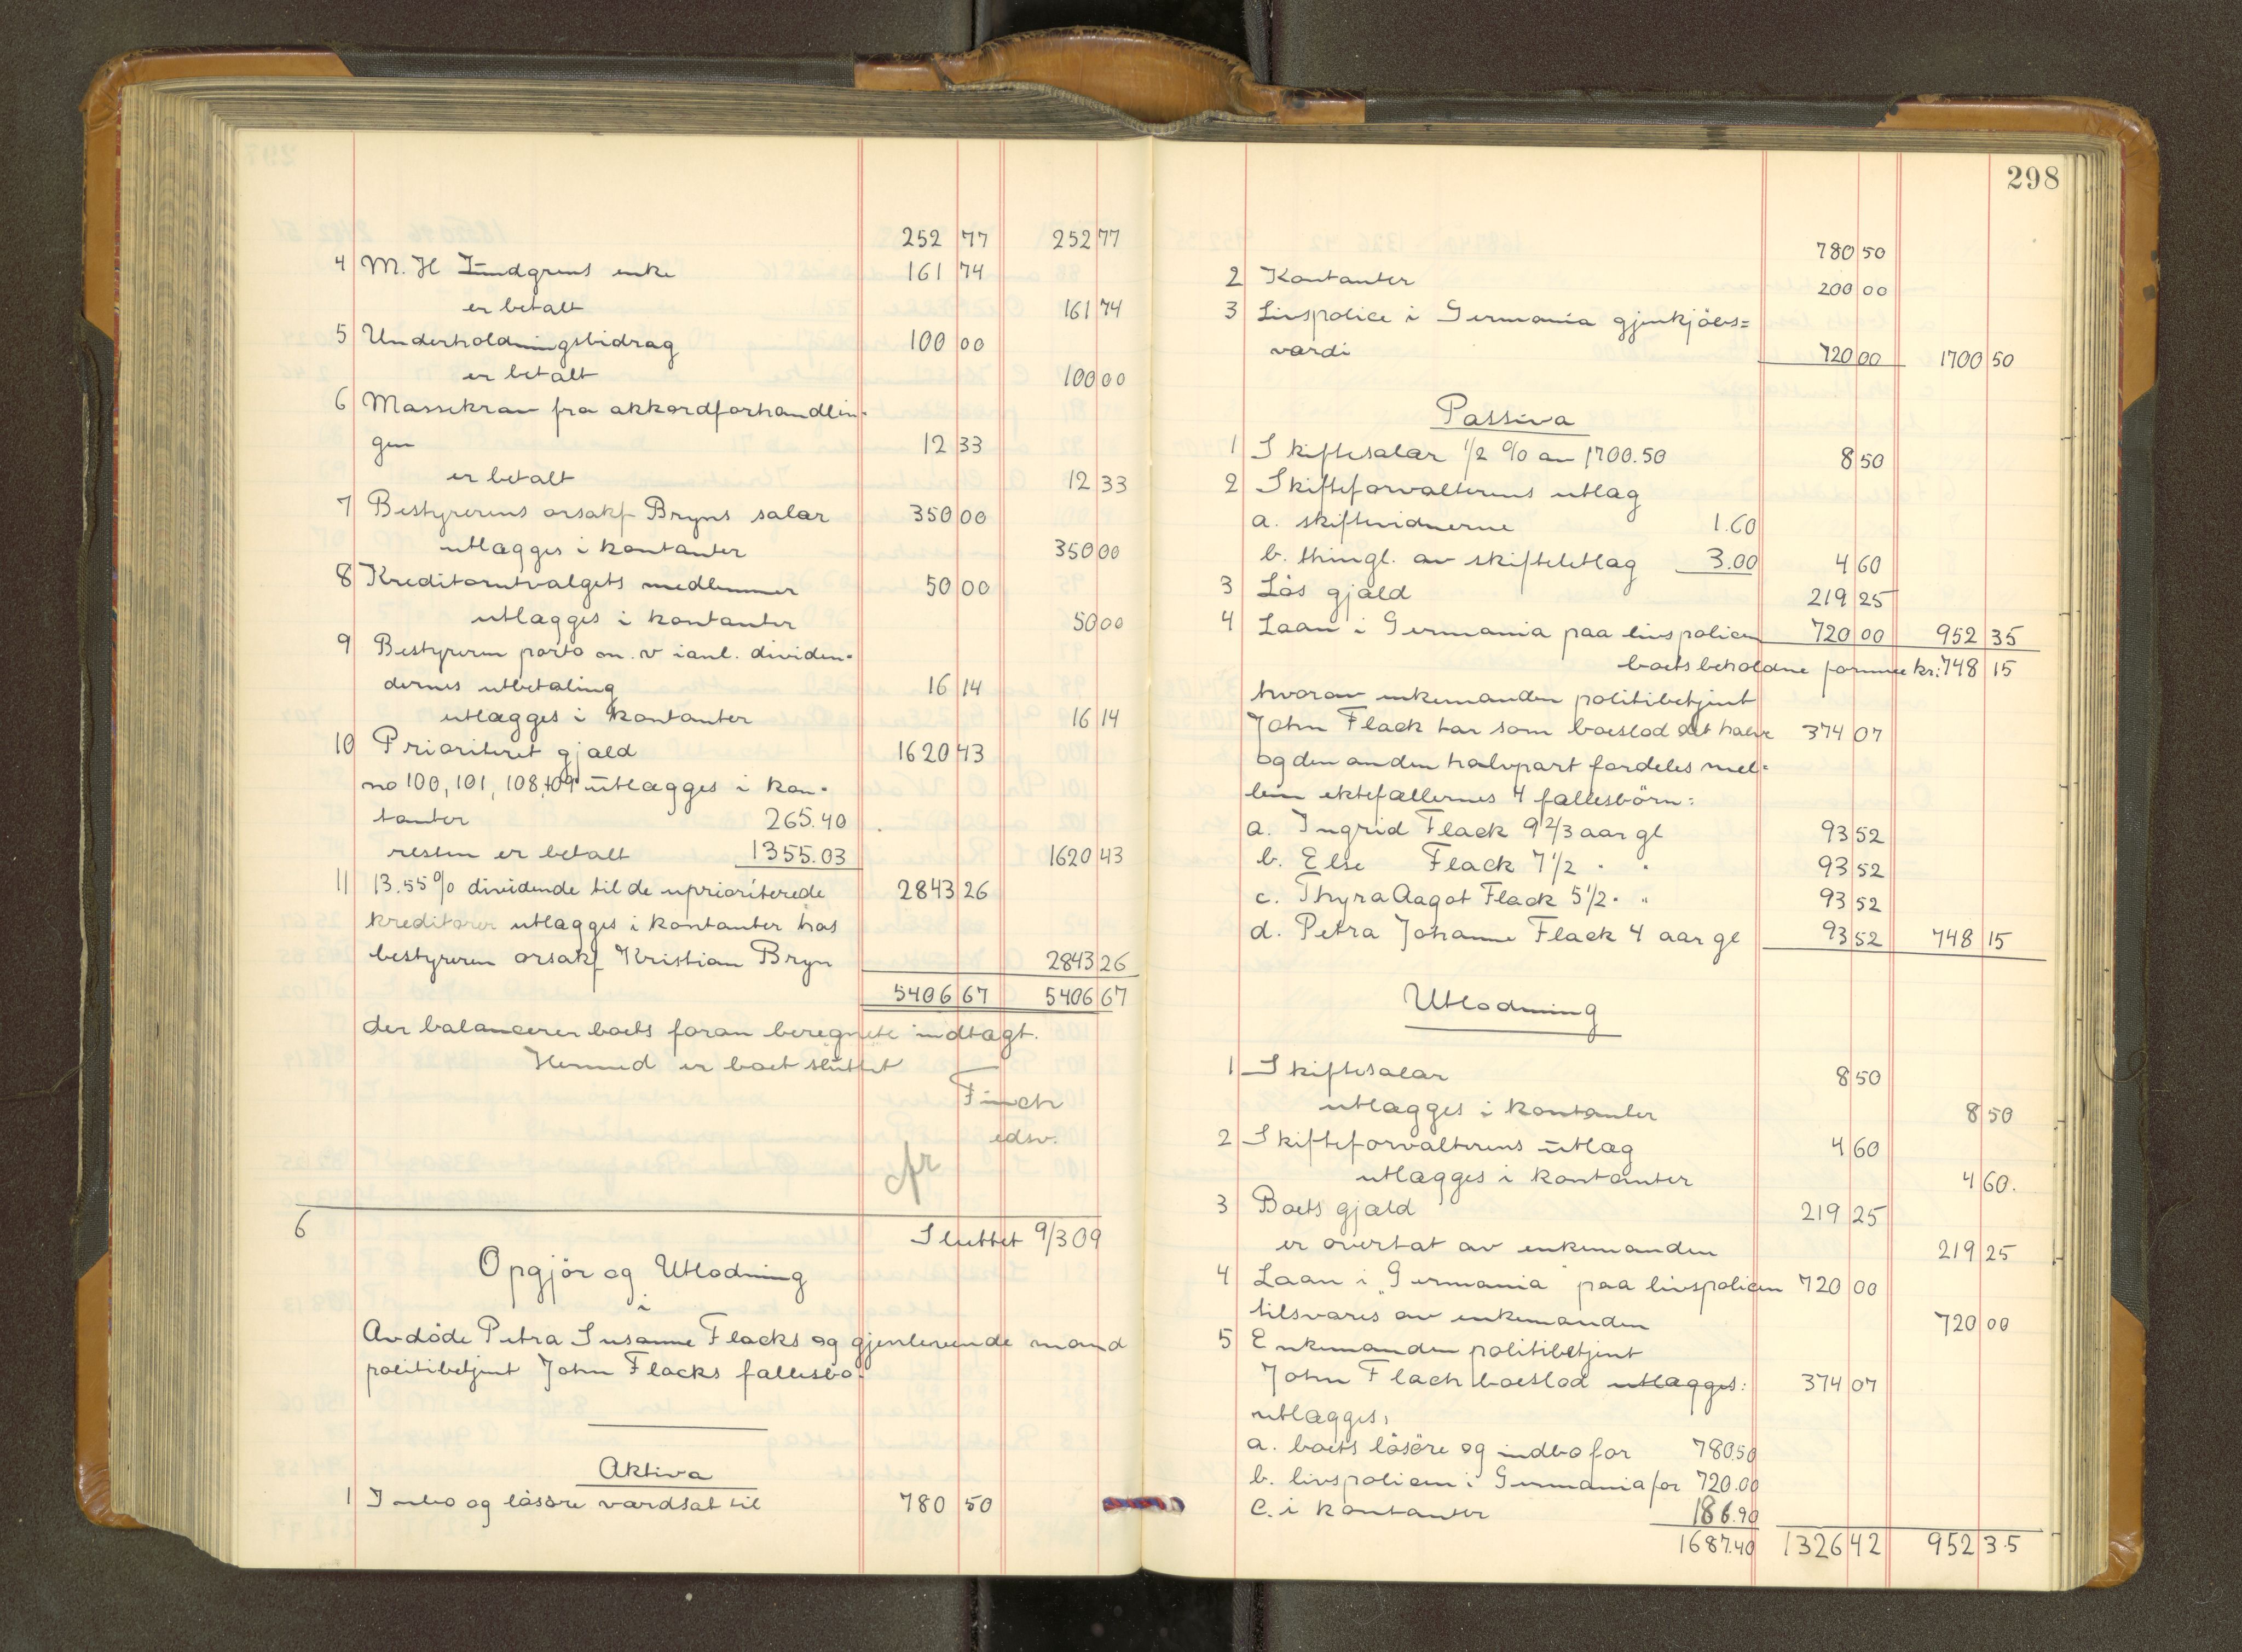 252 77 252 77
4 M. H Lindgrens enke 161 74
er betalt 161 74
5 Underholdningsbidrag 100 00
er betalt 100 00
6 Massekrav fra akkordforhandlin-
gen 12 33
er betalt 12 33
7 Bestyrerens orsakf Bryns salær 350 00
utlægges i kontanter 350 00
8 Kreditorutvalgets medlemmer 50 00
utlægges i kontanter 50 00
9 Bestyreren porto m. v ianl. dividen-
dernes utbetaling 16 14
utlægges i kontanter 16 14
10 Prioritert gjæld 1620 43
no 100, 101, 108, 109 utlægges i kon-
tanter 265.40
resten er betalt 1355.03 1620 43
11 13.55% dividende til de uprioriterede 2843 26
kreditorer utlægges i kontanter hos
bestyreren orsakf Kristian Bryn 2843 26
5406 67 5406 67
der balancerer boets foran beregnete indtægt.
Hermed er boet sluttet
Finch
edsv.
cfr
6 Sluttet 9/3 09
Opgjör og Utlodning
i
Avdöde Petra Susanne Flacks og gjenlevende mand
politibetjent John Flacks fællesbo.
Aktiva
1 Inbo og lösöre værdsat til 780 50
298
780 50
2 Kontanter 200 00
3 Livspolice i Germania gjenkjöbs=
værdi 720 00 1700 50
Passiva
1 Skiftesalær 1/2 % av 1700.50 8 50
2 Skifteforvalterens utlæg
a. skiftevidnerne 1.60
b. thingl. av skifteutlæg 3.00 4 60
3 Lös gjæld 219 25
4 Laan i Germania paa livspolicen 720 00 952 35
boets beholdne formue kr: 748 15
hvorav enkemanden politibetjent
John Flack har som boeslod det halve 374 07
og den anden halvpart fordeles mel-
lem ektefællernes 4 fællesbörn:
a. Ingrid Flack 9 2/3 aar gl 93 52
b. Else Flack 7 1/2 " " 93 52
c. Thyra Aagot Flack 5 1/2 " " 93 52
d. Petra Johanne Flack 4 aar gl 93 52 748 15
Utlodning
1 Skiftesalær 8 50
utlægges i kontanter 8 50
2 Skifteforvalterens utlæg 4 60
utlægges i kontanter 4 60.
3 Boets gjæld 219 25
er overtat av enkemanden 219 25
4 Laan i "Germania" paa livspolicen 720 00
tilsvares av enkemanden 720 00
5 Enkemanden politibetjent
John Flack boeslod utlægges: 374 07
utlægges:
a. boets lösöre og indbo for 780.50
b. livspolicen i Germania for 720.00
c. i kontanter 186.90
1687.40 1326 42 952 35